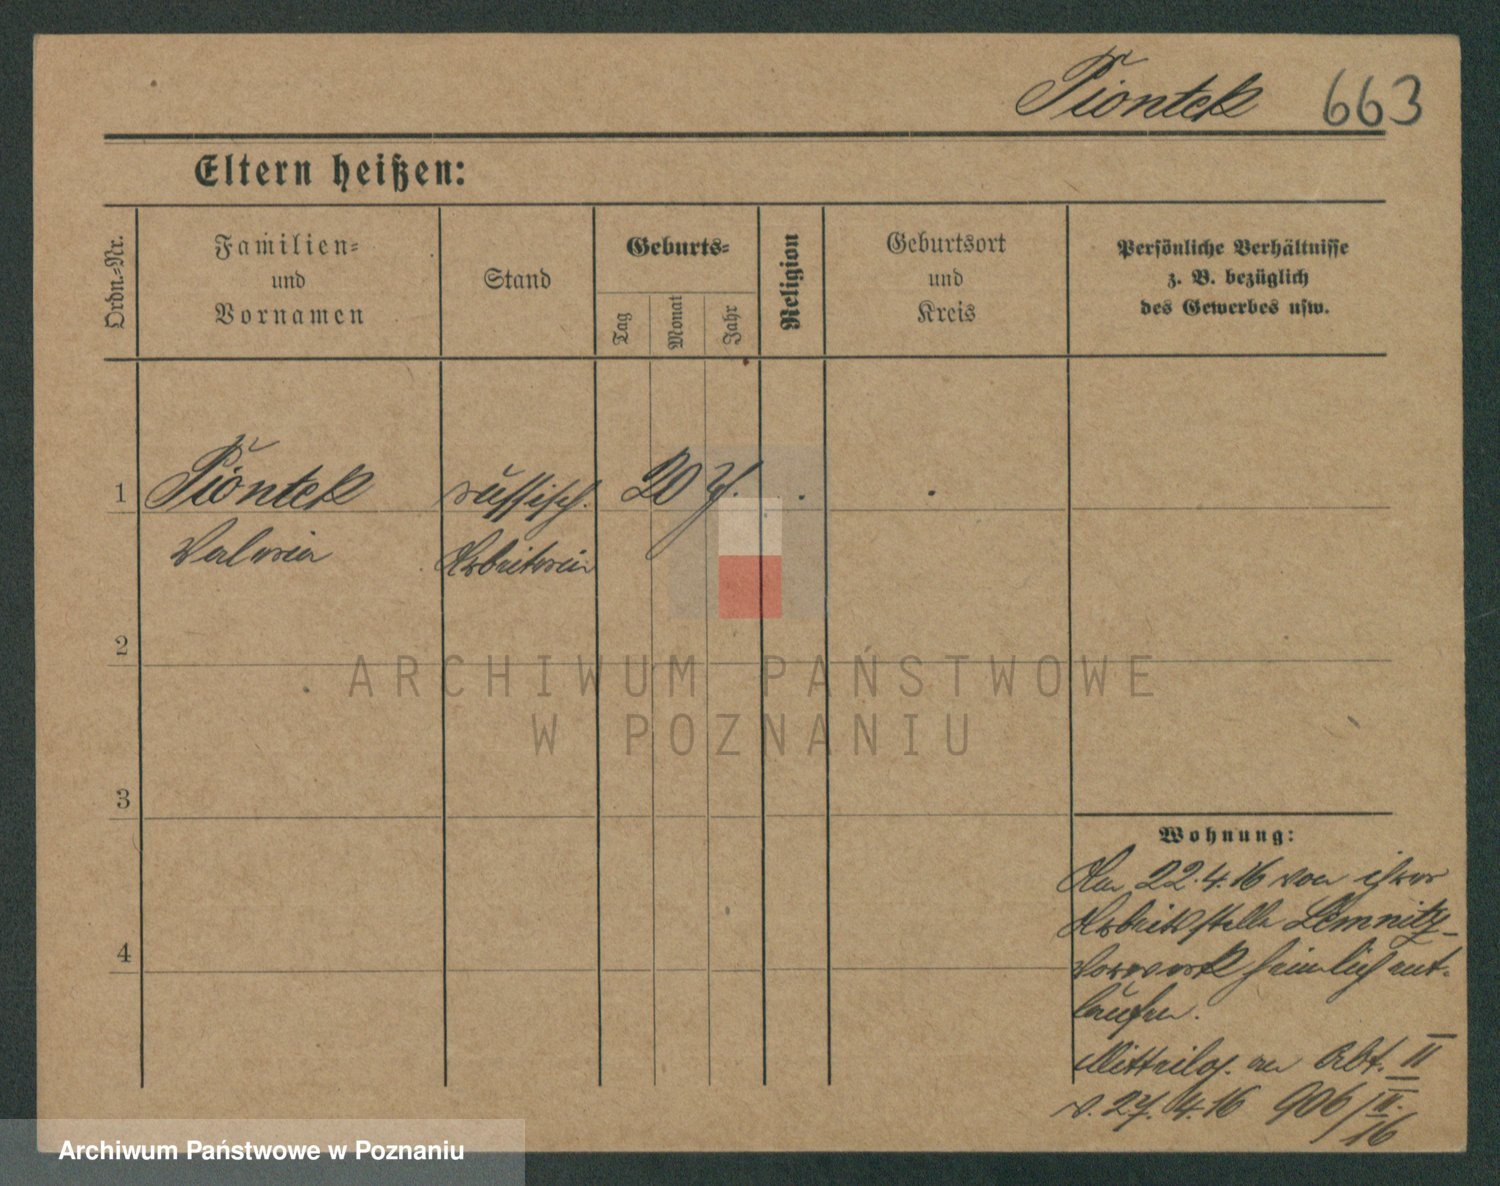 Piontek 663
Eltern heißen:
Ordn.-Nr.
Familien-
und
Vornamen
Stand
Geburts-
Tag
Monat
Jahr
Religion
Geburtsort
und
Kreis
Persönliche Verhältnisse
z. B. bezüglich
des Gewerbes usw.
1 Piontek russisch. 20 J. . .
Valeria Arbeiterin
2
3
4
Wohnung:
Am 22.4.16 von ihrer
Arbeitsstelle Lemnitz-
Vorwerk heimlich ent-
laufen.
Mitteilg. an Abt. II
v. 27.4.16 906/II.
16
ARCHIWUM PAŃSTWOWE
W POZNANIU
Archiwum Państwowe w Poznaniu